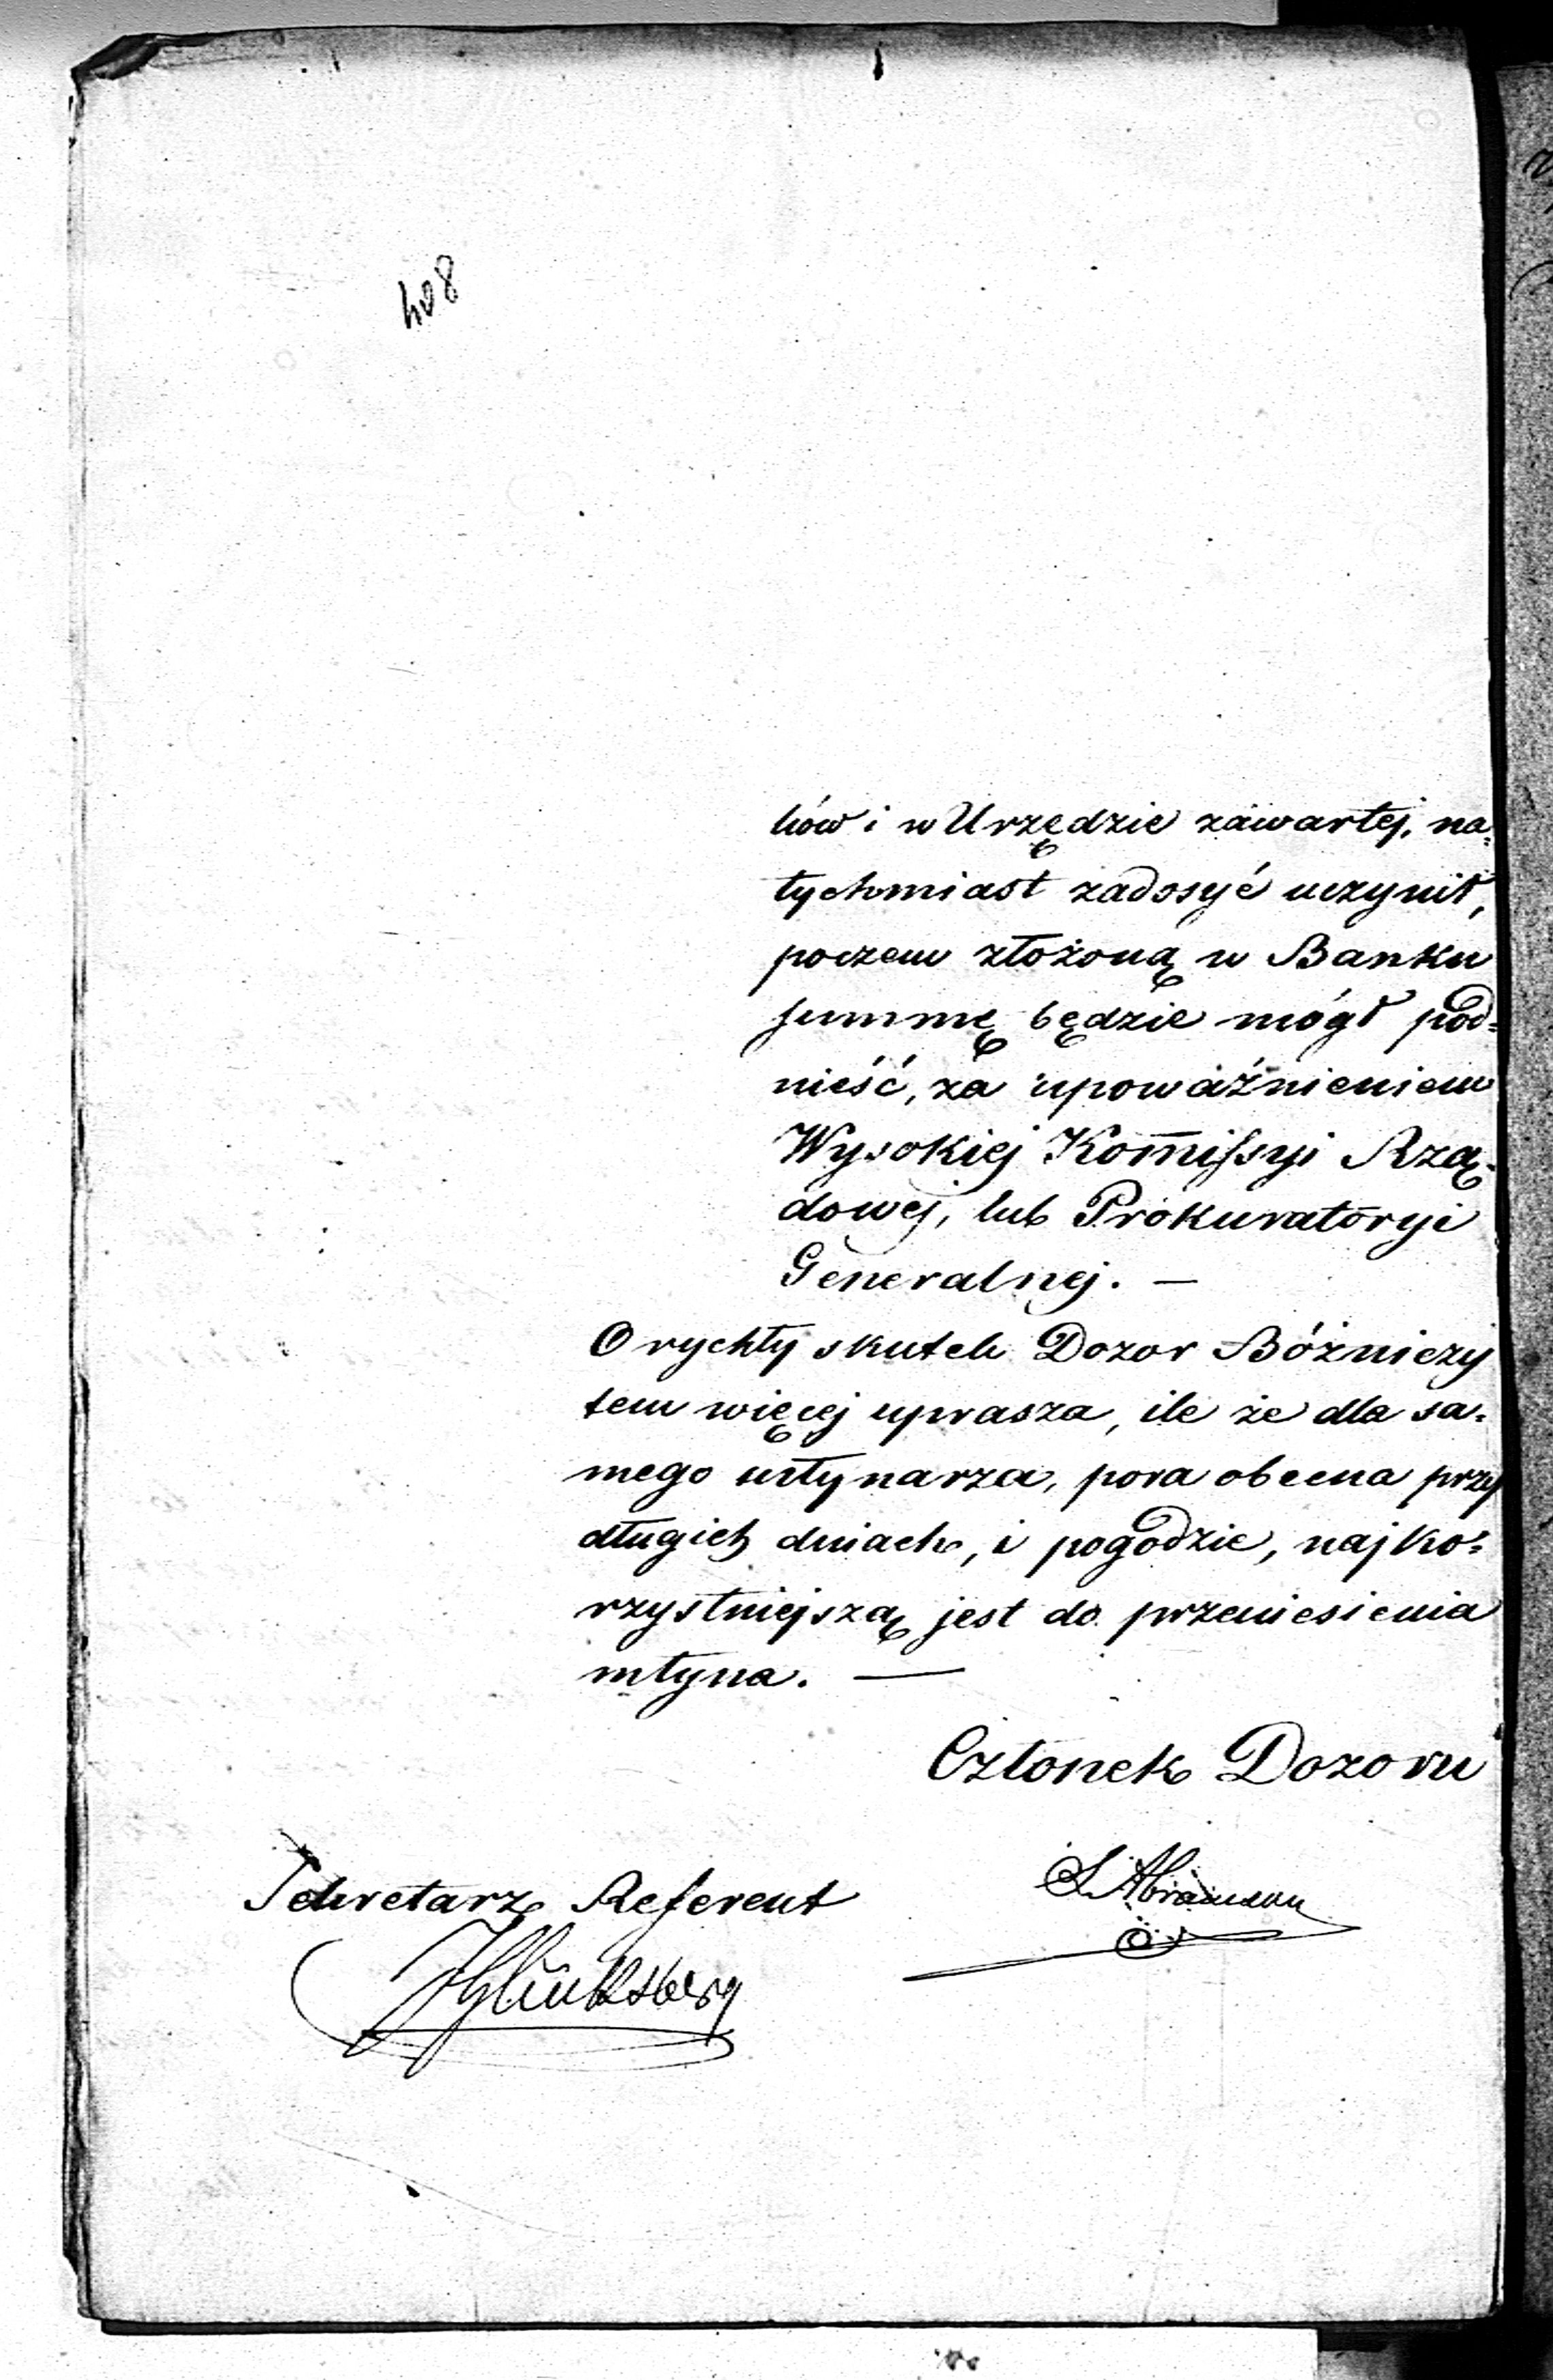 408
ków i w Urzędzie zawartej, na=
tychmiast zadosyć uczynił,
poczem złożoną w Banku
summę będzie mógł pod=
nieść, za upoważnieniem
Wysokiej Kom̄issyi Rzą=
dowej, lub Prokuratoryi
Generalnej. —
O rychły skutek Dozor Bóżniczy
tem więcej uprasza, ile że dla sa=
mego młynarza, pora obecna przy
długich dniach, i pogodzie, najko=
rzystniejszą jest do przeniesienia
młyna. —
Członek Dozoru
Sekretarz Referent
Glücksberg